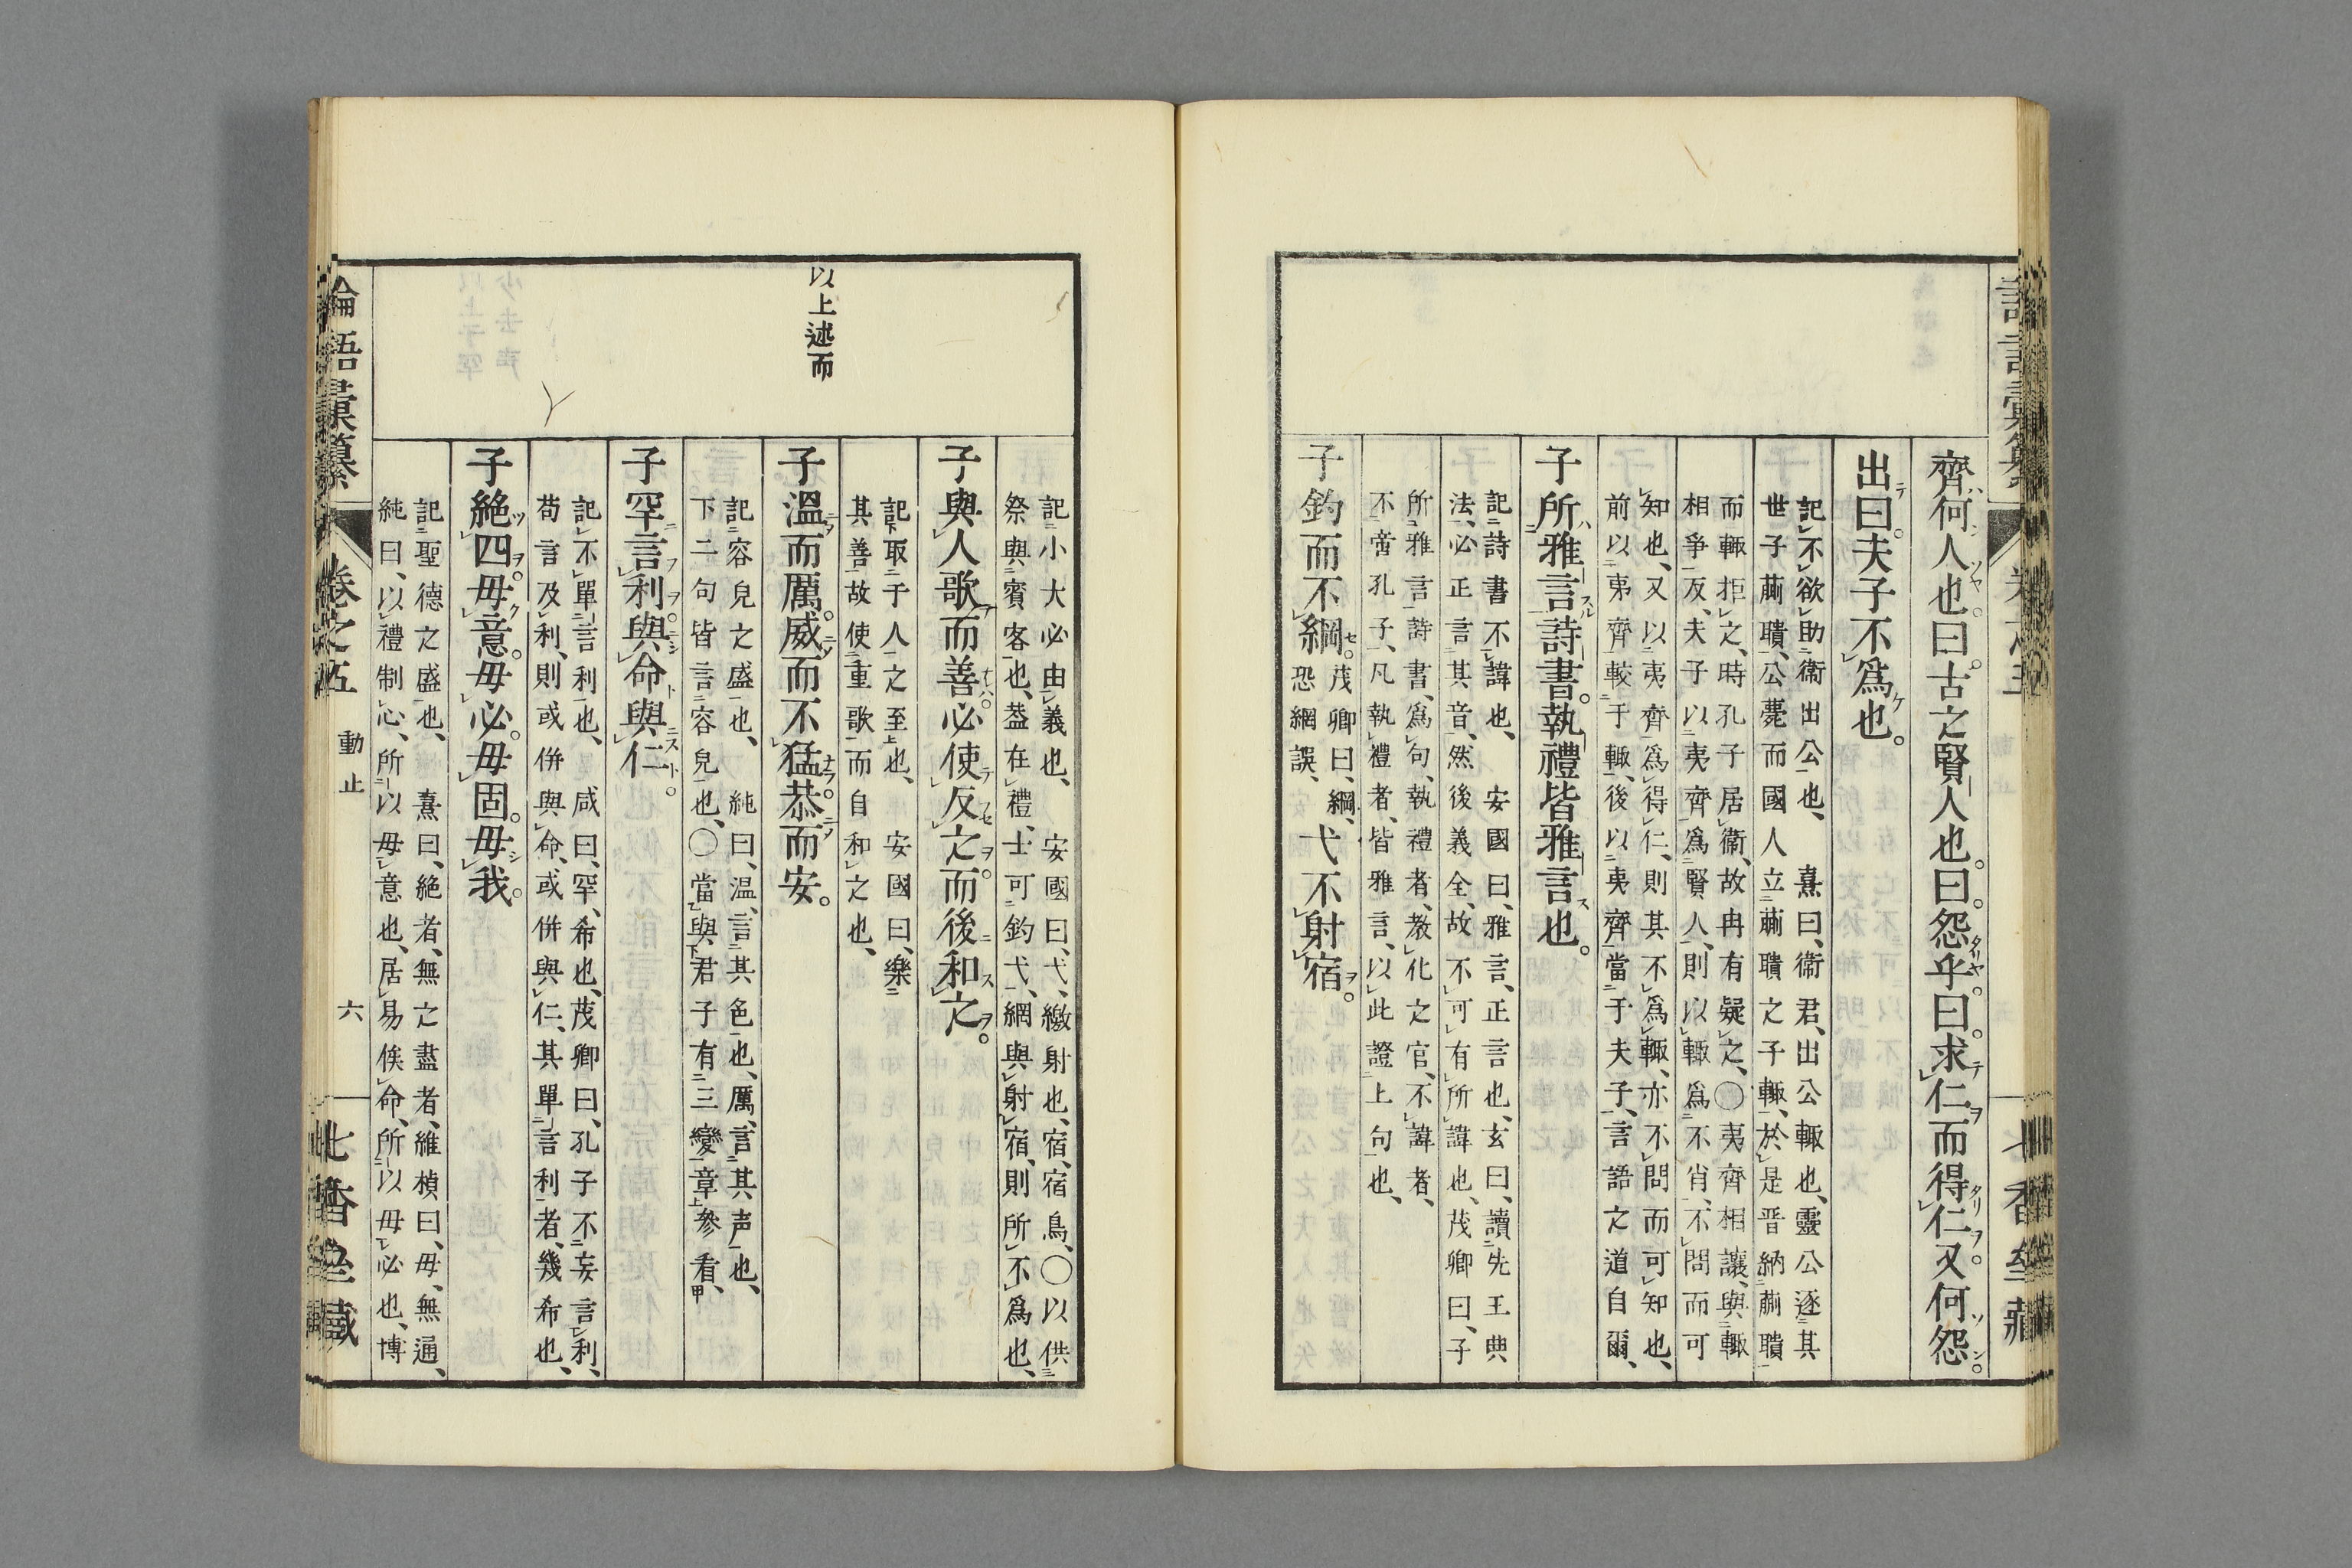 齊何人也曰古之賢人也曰怨乎曰求仁而得仁又何怨
出曰夫子不爲也
記不欲助衞出公也、　熹曰、衞君、出公輒也、靈公逐其
世子蒯聵、公薨而國人立蒯聵之子輒、於是晋納蒯聵
而輒拒之、時孔子居衞、故冉有疑之、〇夷齊相讓、與輒
相爭反、夫子以夷齊爲賢人、則以輒爲不肖、不問而可
知也、又以夷齊爲得仁、則其不爲輒、亦不問而可知也、
前以夷齊較于輒、後以夷齊當于夫子、言語之道自爾、
子所雅言詩書。執禮皆雅言也。
記詩書不諱也、　安國曰、雅言、正言也、玄曰、讀先王典
法、必正言其音、然後義全、故不可有所諱也、茂卿曰、子
所雅言詩書、爲句、執禮者、教化之官、不諱者、
不啻孔子、凡執禮者、皆雅言、以此證上句也、
子釣而不綱。茂卿曰、綱、恐網誤、弋不射宿。
記小大必由義也、　安國曰、弋、繳射也、宿、宿鳥、〇以供
祭與賓客也、葢在禮、士可釣弋、網與射宿、則所不爲也、
子與人歌而善必使反之而後和之。
記取于人之至也、　安國曰、樂
其善故使重歌而自和之也、
子溫而厲。威而不猛。恭而安。
記容皃之盛也、　純曰、温、言其色也、厲、言其声也、
下二句皆言容皃也、〇當與君子有三變章參看、
子罕言利與命與仁。
記不單言利也、　咸曰、罕、希也、茂卿曰、孔子不妄言利、
苟言及利、則或併與命、或併與仁、其單言利者、幾希也、
子絶四。毋意。毋必。毋固。毋我。
記聖德之盛也、　熹曰、絶者、無之盡者、維楨曰、毋、無通、
純曰、以禮制心、所以毋意也、居易俟命、所以毋必也、博
以上述而
論語彙纂　卷之五　動止　六　七香堂藏